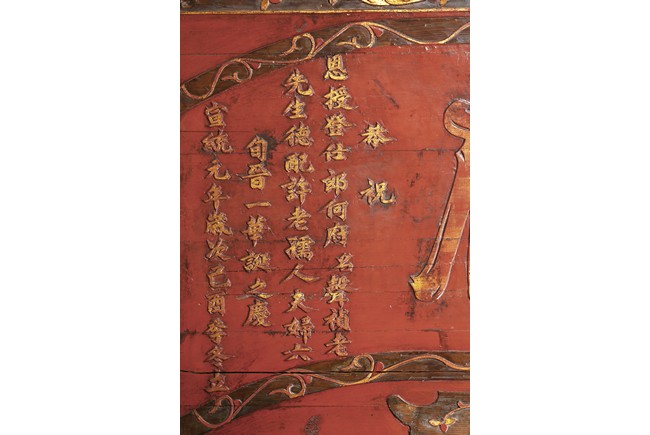 恭祝
恩授登仕郎何府名聲補老
先生德配許老孺人夫婦六
旬晉一華誕之慶
宣統元年歲次己酉季冬立